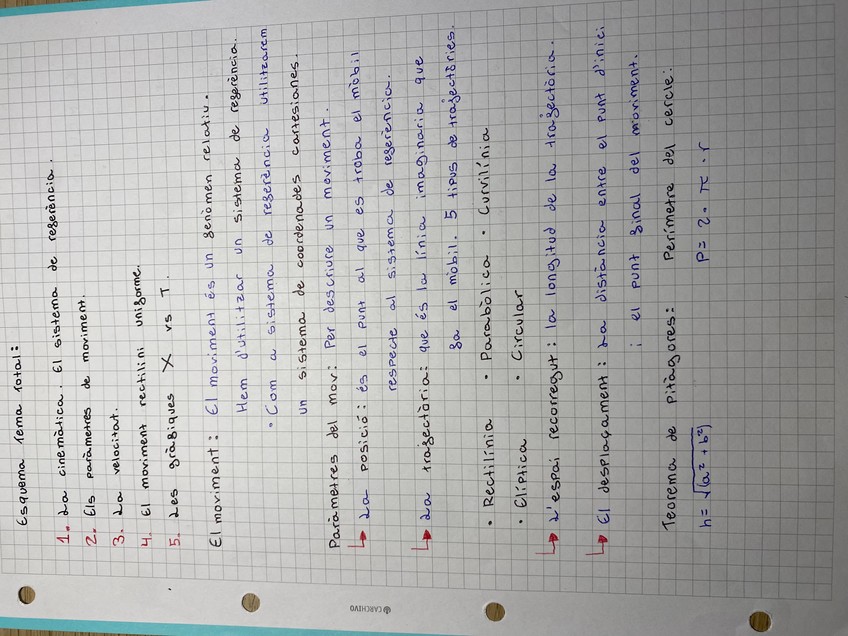 Esquema Tema Total:
1. La cinemàtica. El sistema de referència.
2. Els paràmetres de moviment.
3. La velocitat.
4. El moviment rectilini uniforme.
5. Les gràfiques X vs T.
El moviment: El moviment és un fenòmen relatiu.
Hem d'utilitzar un sistema de referència.
• Com a sistema de referència utilitzarem
un sistema de coordenades cartesianes.
Paràmetres del mov: Per descriure un moviment.
↳ La posició: és el punt al que es troba el mòbil
respecte al sistema de referència.
↳ La trajectòria: que és la línia imaginaria que
fa el mòbil. 5 tipus de trajectòries.
• Rectilínia • Parabòlica • Curvilínia
• Elíptica • Circular
↳ L'espai recorregut: la longitud de la trajectòria.
↳ El desplaçament: La distància entre el punt d'inici
i el punt final del moviment.
Teorema de Pitàgores: Perímetre del cercle:
h = √(a² + b²) P = 2 · π · r
CARCHIVO